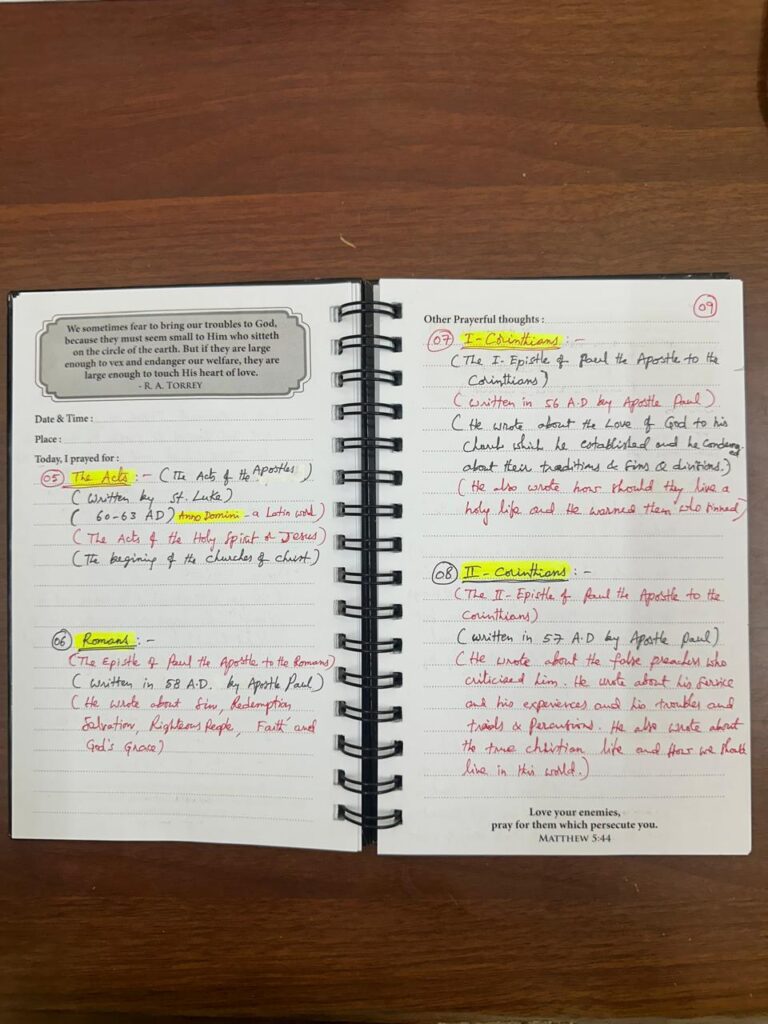 We sometimes fear to bring our troubles to God,
because they must seem small to Him who sitteth
on the circle of the earth. But if they are large
enough to vex and endanger our welfare, they are
large enough to touch His heart of love.
- R. A. Torrey
Date & Time :
Place :
Today, I prayed for :
05 The Acts : - (The Acts of the Apostles)
(written by St. Luke)
( 60-63 AD) Anno Domini - a Latin word)
(The Acts of the Holy Spirit of Jesus)
(The begining of the churches of christ)
06 Romans : -
(The Epistle of Paul the Apostle to the Romans)
(written in 58 A.D. by Apostle Paul)
(He wrote about Sin, Redemption
Salvation, Righteous People, Faith and
God's Grace)
09
Other Prayerful thoughts :
07 I - Corinthians : -
(The I- Epistle of Paul the Apostle to the
Corinthians)
(written in 56 A.D by Apostle Paul)
(He wrote about the Love of God to his
church which he established and he Condemned
about their traditions & Sins & divisions.)
(He also wrote how should they live a
holy life and He warned them who sinned)
08 II - Corinthians : -
(The II- Epistle of Paul the Apostle to the
Corinthians)
(written in 57 A.D by Apostle Paul)
(He wrote about the false preachers who
criticised him. He wrote about his Service
and his experiences and his troubles and
trials & . He also wrote about
the true christian life and How we should
live in this world.)
Love your enemies,
pray for them which persecute you.
Matthew 5:44